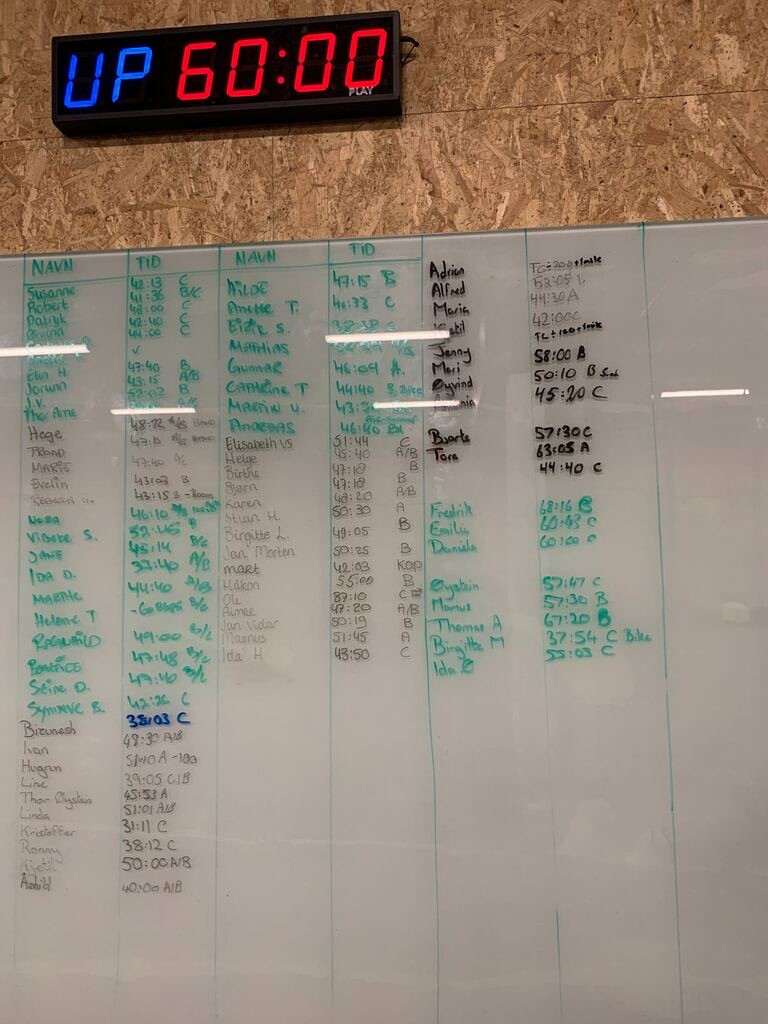 UP 60:00
PLAY
NAVN TID NAVN TID
Susanne 42:13 C
Robert 41:36 B/C
Patryk 46:00 C
Øivind 42:40 C
44:00 C
✓
Elin H 47:40 B
Jorunn 43:15 A/B
J.V. 52:02 B
Thor Arne
Hege 48:72
Trond 47:10
Marie 47:40 A/C
Evelin 43:03 B
43:15 B
Nora 46:10
Vibeke S. 52:45 B
Jane 45:14 B/C
Ida D. 37:40 A/B
Marthe 44:40 A/B
Helene T B/C
Ragnhild 49:00 B/C
Beatrice 47:48 B/C
Stine D. 47:40 B/C
Synnøve B. 42:26 C
Bizunesh 38:03 C
Ivan 48:30 A/B
Hugrun 51:40 A -100
Line 39:05 C/B
Thor Øystein 45:53 A
Linda 51:01 A/B
Kristoffer 31:11 C
Ronny 38:12 C
Kjetil 50:00 A/B
Åshild 40:00 A/B
47:15 B
Anette T. 40:33 C
Eirik S. 38:38 C
Mathias
Gunnar 46:09 A.
Cathrine T 44:40 B Bike
Martin U.
Andreas 46:40 Bx
Elisabeth VS 51:44 C
Helge 45:40 A/B
Birthe 47:10 B
Bjørn 47:10 B
Karen 48:20 A/B
Stian H. 50:30 A
Birgitte L. 49:05 B
Jan Morten 50:25 B
mart 42:03 KOP
Håkon 55:00 B
Ole 87:10 C
Aimee 47:20 A/B
Jan Vidar 50:19 B
Magnus 51:45 A
Ida H 43:50 C
Adrian
Alfred 52:05
Maria 44:30 A
Kjetil 42:00 C
Jenny 58:00 A
Mari 50:10 B
Øyvind 45:20 C
Bjarte 57:30 C
Tara 63:05 A
44:40 C
Fredrik 68:16 B
Emilie 60:43 C
Daniela 60:00 C
Øystein 57:47 C
Marius 57:30 B
Thomas A 67:20 B
Birgitte M 37:54 C Bike
Ida Ø 55:03 C